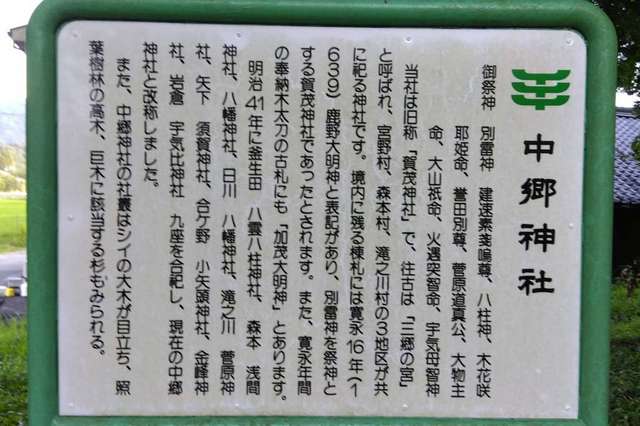 中郷神社
御祭神　別雷神　建速素戔嗚尊、八柱神、木花咲
耶姫命、誉田別尊、菅原道真公、大物主
命、大山祇命、火遇突智命、宇気母智神
当社は旧称「賀茂神社」で、往古は「三郷の宮」
と呼ばれ、宮野村、森本村、滝之川村の3地区が共
に祀る神社です。境内に残る棟札には寛永16年(1
639) 鹿野大明神と表記があり、別雷神を祭神と
する賀茂神社であったとされます。また、寛永年間
の奉納木太刀の古札にも「加茂大明神」とあります。
明治41年に釜生田　八雲八柱神社、森本　浅間
神社、八幡神社、日川　八幡神社、滝之川　菅原神
社、矢下　須賀神社、合ケ野　小矢頭神社、金峰神
社、岩倉　宇気比神社　九座を合祀し、現在の中郷
神社と改称しました。
また、中郷神社の社叢はシイの大木が目立ち、照
葉樹林の高木、巨木に該当する杉もみられる。